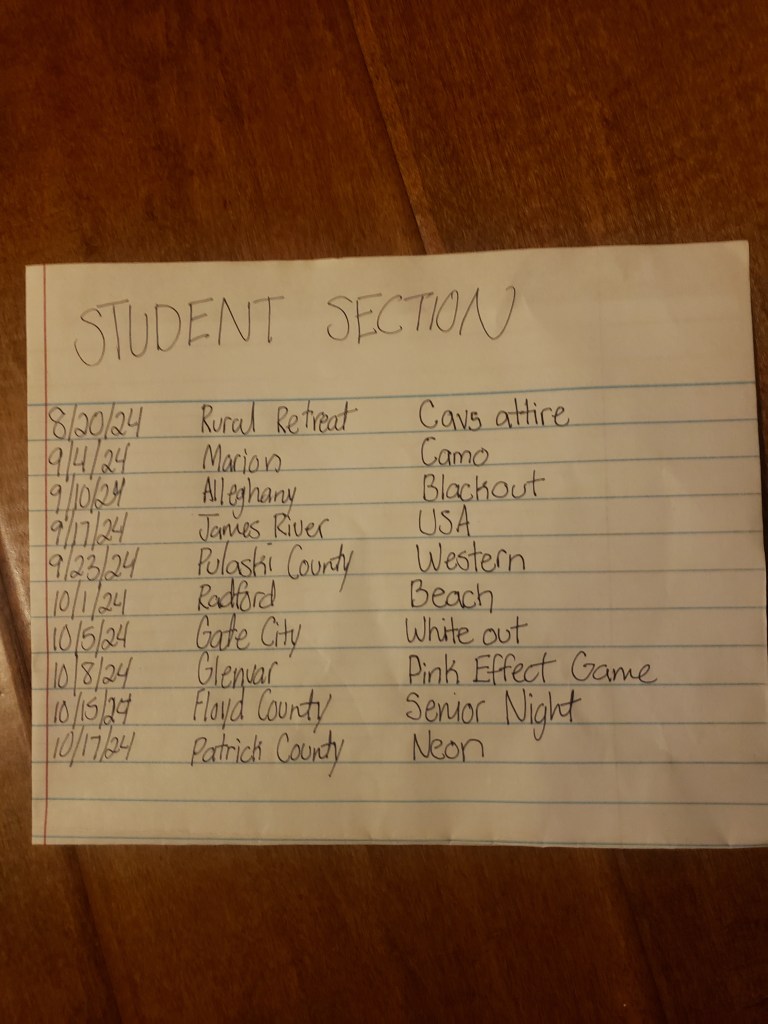 STUDENT SECTION
8/20/24 Rural Retreat Cavs attire
9/4/24 Marion Camo
9/10/24 Alleghany Blackout
9/17/24 James River USA
9/23/24 Pulaski County Western
10/1/24 Radford Beach
10/5/24 Gate City White out
10/8/24 Glenvar Pink Effect Game
10/15/24 Floyd County Senior Night
10/17/24 Patrick County Neon